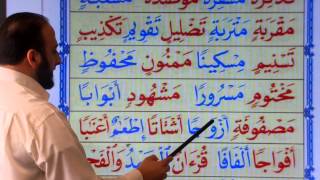 مَقْرَبَةٍ مَتْرَبَةٍ تَضْلِيلٍ تَقْوِيمٍ تَكْذِيبٍ
تَسْنِيمٍ مِسْكِينًا مَمْنُونٍ مَحْفُوظٍ
مَخْتُومٍ مَسْرُورًا مَشْهُودٍ أَبْوَابًا
مَصْفُوفَةٌ أَزْوَاجًا أَشْتَاتًا إِطْعَامٌ أَعْنَابًا
أَفْوَاجًا أَلْفَافًا قُرْآنٌ